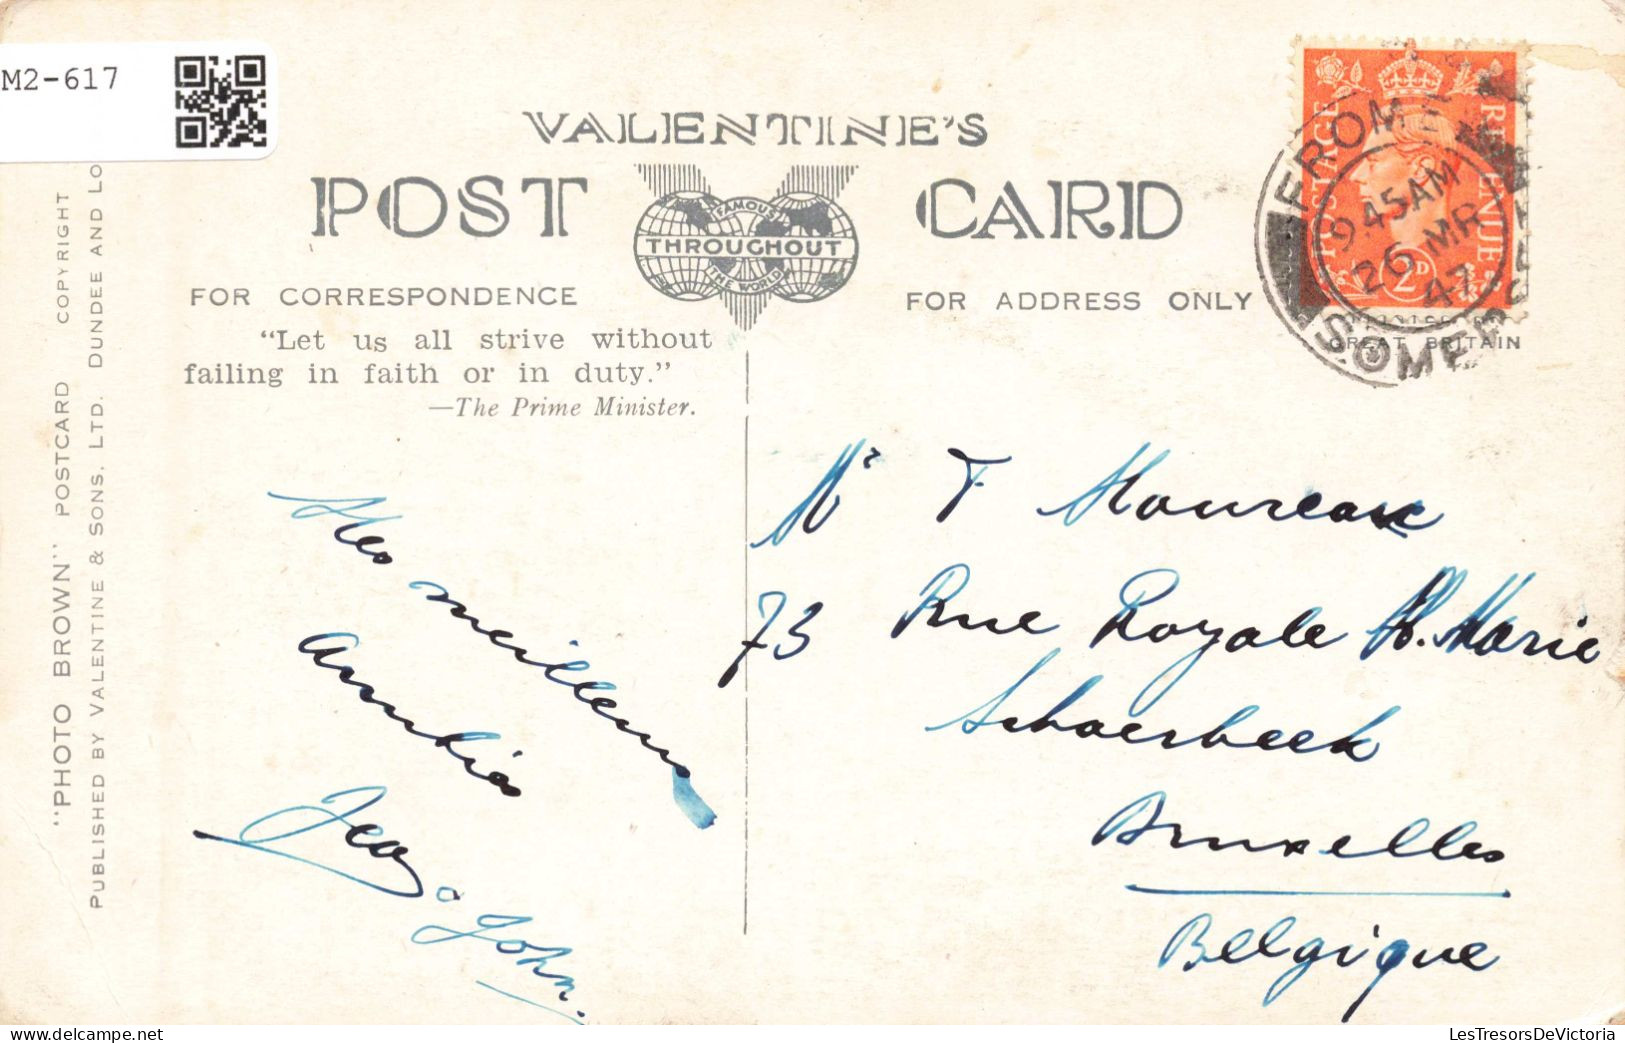 M2-617
VALENTINE'S
POST CARD
FAMOUS
THROUGHOUT
THE WORLD
FOR CORRESPONDENCE
FOR ADDRESS ONLY
"Let us all strive without
failing in faith or in duty."
—The Prime Minister.
"PHOTO BROWN" POSTCARD COPYRIGHT
PUBLISHED BY VALENTINE & SONS, LTD. DUNDEE AND LO
POSTAGE REVENUE
2D
FROME
945AM
26 MR
47
SOMERSET
GREAT BRITAIN
Mes meilleurs
amitiés
Jean
John
Mr F Moureau
73 Rue Royale St. Marie
Schaerbeek
Bruxelles
Belgique
LesTresorsDeVictoria